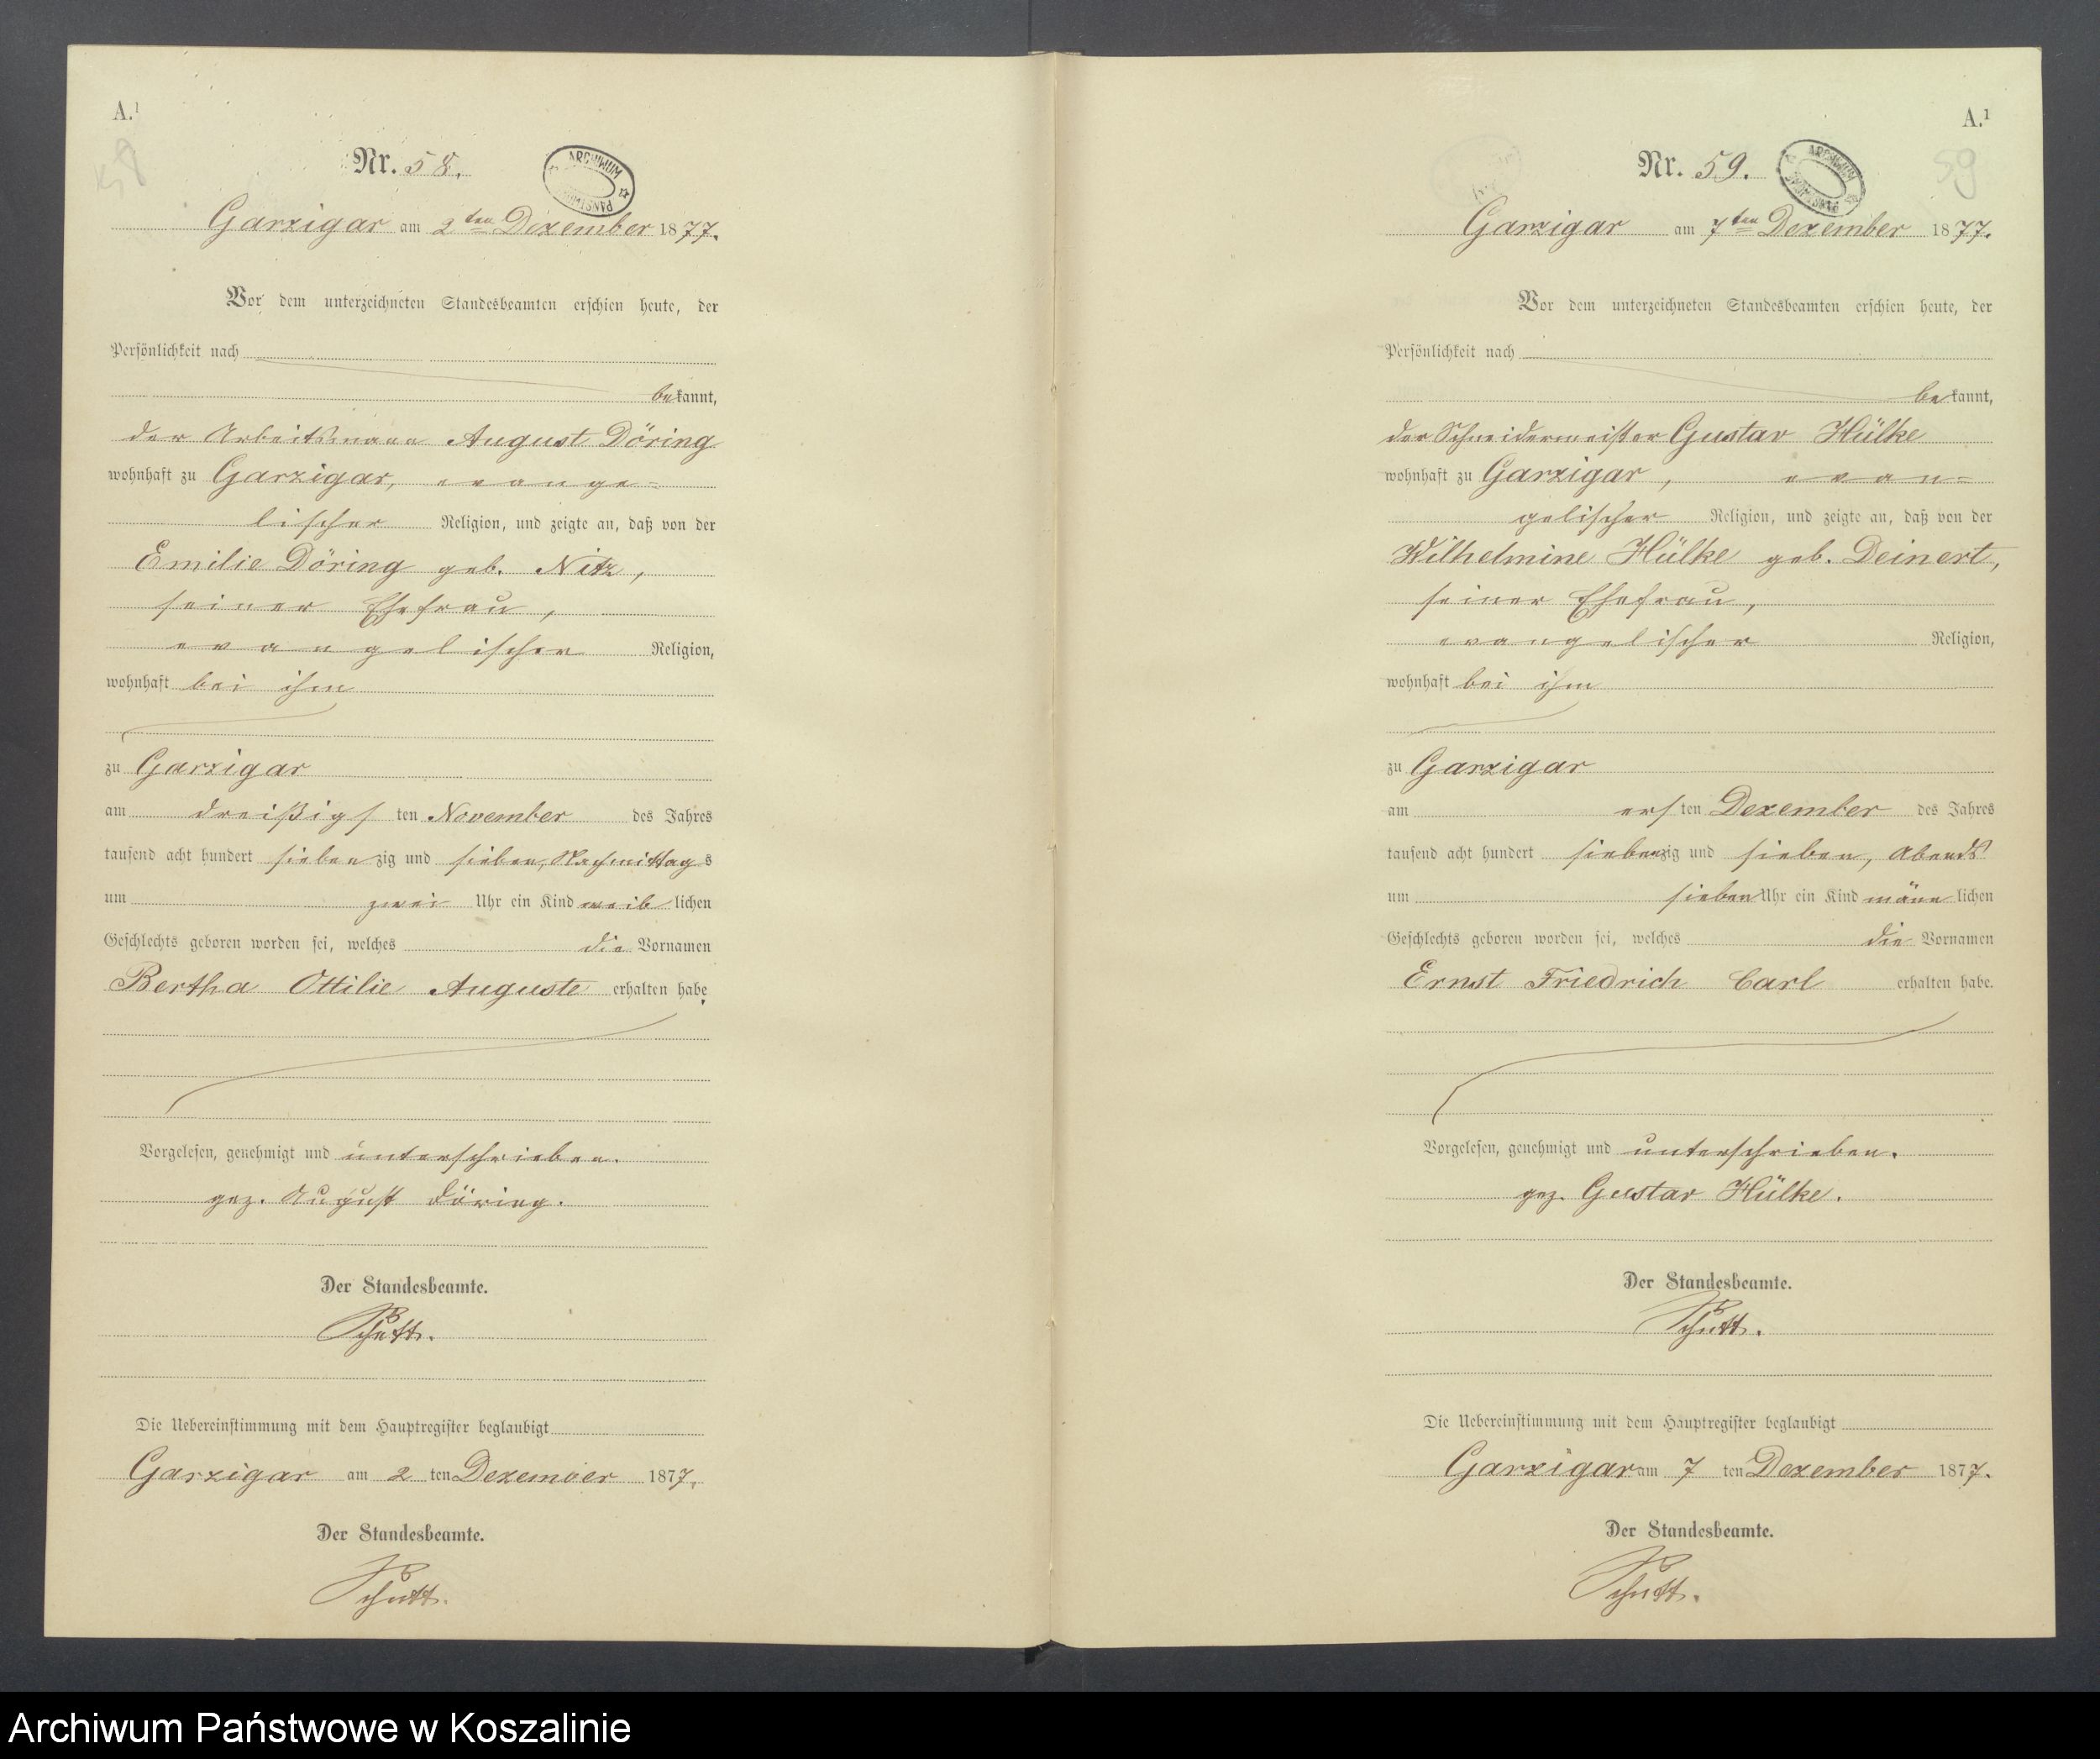 A.¹
58
Nr. 58.
ARCHIWUM
Garzigar am 2ten Dezember 1877.
Vor dem unterzeichneten Standesbeamten erschien heute, der
Persönlichkeit nach
bekannt,
der Arbeitsmann August Döring
wohnhaft zu Garzigar, evange=
lischer Religion, und zeigte an, daß von der
Emilie Döring geb. Nitz,
seiner Ehefrau,
evangelischer Religion,
wohnhaft bei ihm
zu Garzigar
am dreißigsten November des Jahres
tausend acht hundert siebenzig und sieben, Nachmittags
um zwei Uhr ein Kind weiblichen
Geschlechts geboren worden sei, welches die Vornamen
Bertha Ottilie Auguste erhalten habe.
Vorgelesen, genehmigt und unterschrieben.
gez. August Döring.
Der Standesbeamte.
Schutt.
Die Uebereinstimmung mit dem Hauptregister beglaubigt
Garzigar am 2ten Dezember 1877.
Der Standesbeamte.
Schutt.
A.¹
59
Nr. 59.
ARCHIWUM
Garzigar am 7ten Dezember 1877.
Vor dem unterzeichneten Standesbeamten erschien heute, der
Persönlichkeit nach
bekannt,
der Schneidermeister Gustav Hülke
wohnhaft zu Garzigar, evan=
gelischer Religion, und zeigte an, daß von der
Wilhelmine Hülke geb. Deinert,
seiner Ehefrau,
evangelischer Religion,
wohnhaft bei ihm
zu Garzigar
am ersten Dezember des Jahres
tausend acht hundert siebenzig und sieben, Abends
um sieben Uhr ein Kind männlichen
Geschlechts geboren worden sei, welches die Vornamen
Ernst Friedrich Carl erhalten habe.
Vorgelesen, genehmigt und unterschrieben.
gez. Gustav Hülke.
Der Standesbeamte.
Schutt.
Die Uebereinstimmung mit dem Hauptregister beglaubigt
Garzigar am 7ten Dezember 1877.
Der Standesbeamte.
Schutt.
Archiwum Państwowe w Koszalinie